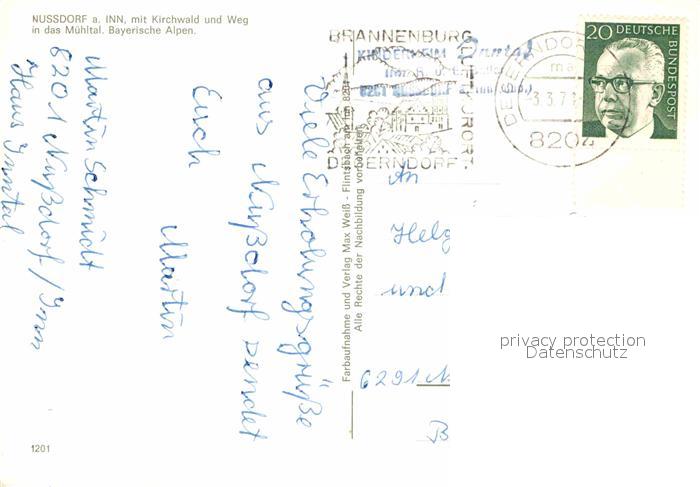 NUSSDORF a. INN, mit Kirchwald und Weg
in das Mühltal. Bayerische Alpen.
Martin Schmidt
8201 Nußdorf/Inn
Haus Inntal
Viele Erholungsgrüße
aus Nußdorf sendet
Euch
Martin
1201
Farbaufnahme und Verlag Max Weiß - Flintsbach am Inn 8201
Alle Rechte der Nachbildung vorbehalten
BRANNENBURG
LUFTKURORT
DEGERNDORF
KINDERHEIM Inntal
DEGERNDORF
3.3.71
8204
20 DEUTSCHE
BUNDESPOST
An
Helg
und
6291 N
B
privacy protection
Datenschutz